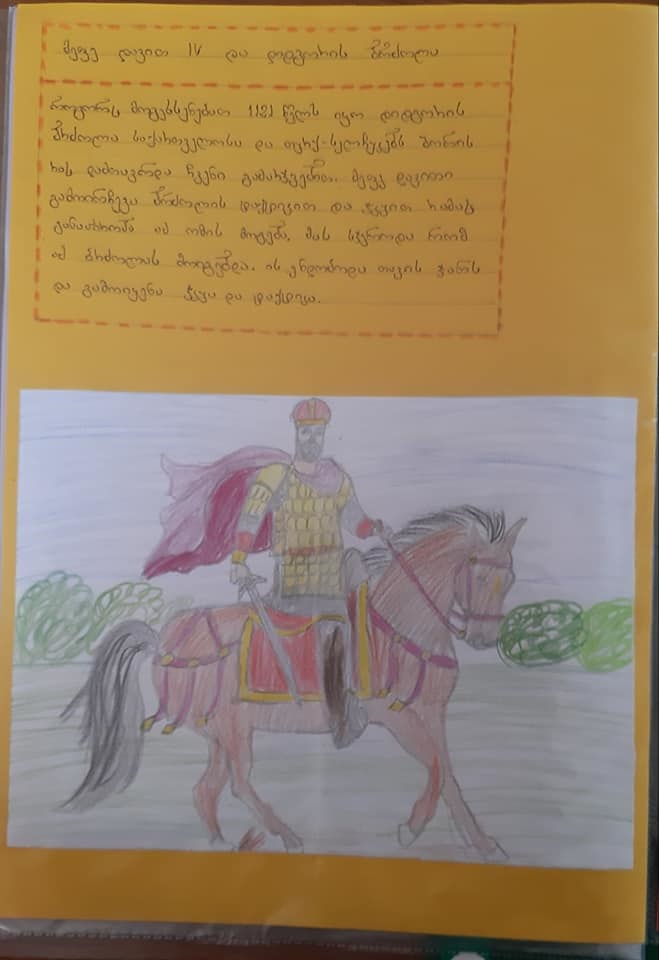 მეფე დავით IV და დიდგორის ბრძოლა
როგორც მოგეხსენებათ 1121 წელს იყო დიდგორის
ბრძოლა საქართველოსა და თურქ-სელჩუკებს შორის
რის დამთავრდა ჩვენი გამარჯვებით. მეფე დავითი
გამოირჩევა ბრძოლის ტაქტიკით და ჭკვით რამაც
განაპირობა ამ ომის მოგება. მას სჯეროდა რომ
ამ ბრძოლას მოიგებდა. ის ენდობოდა თავის ჯარს
და გამოიყენა ჭკუა და ტაქტიკა.